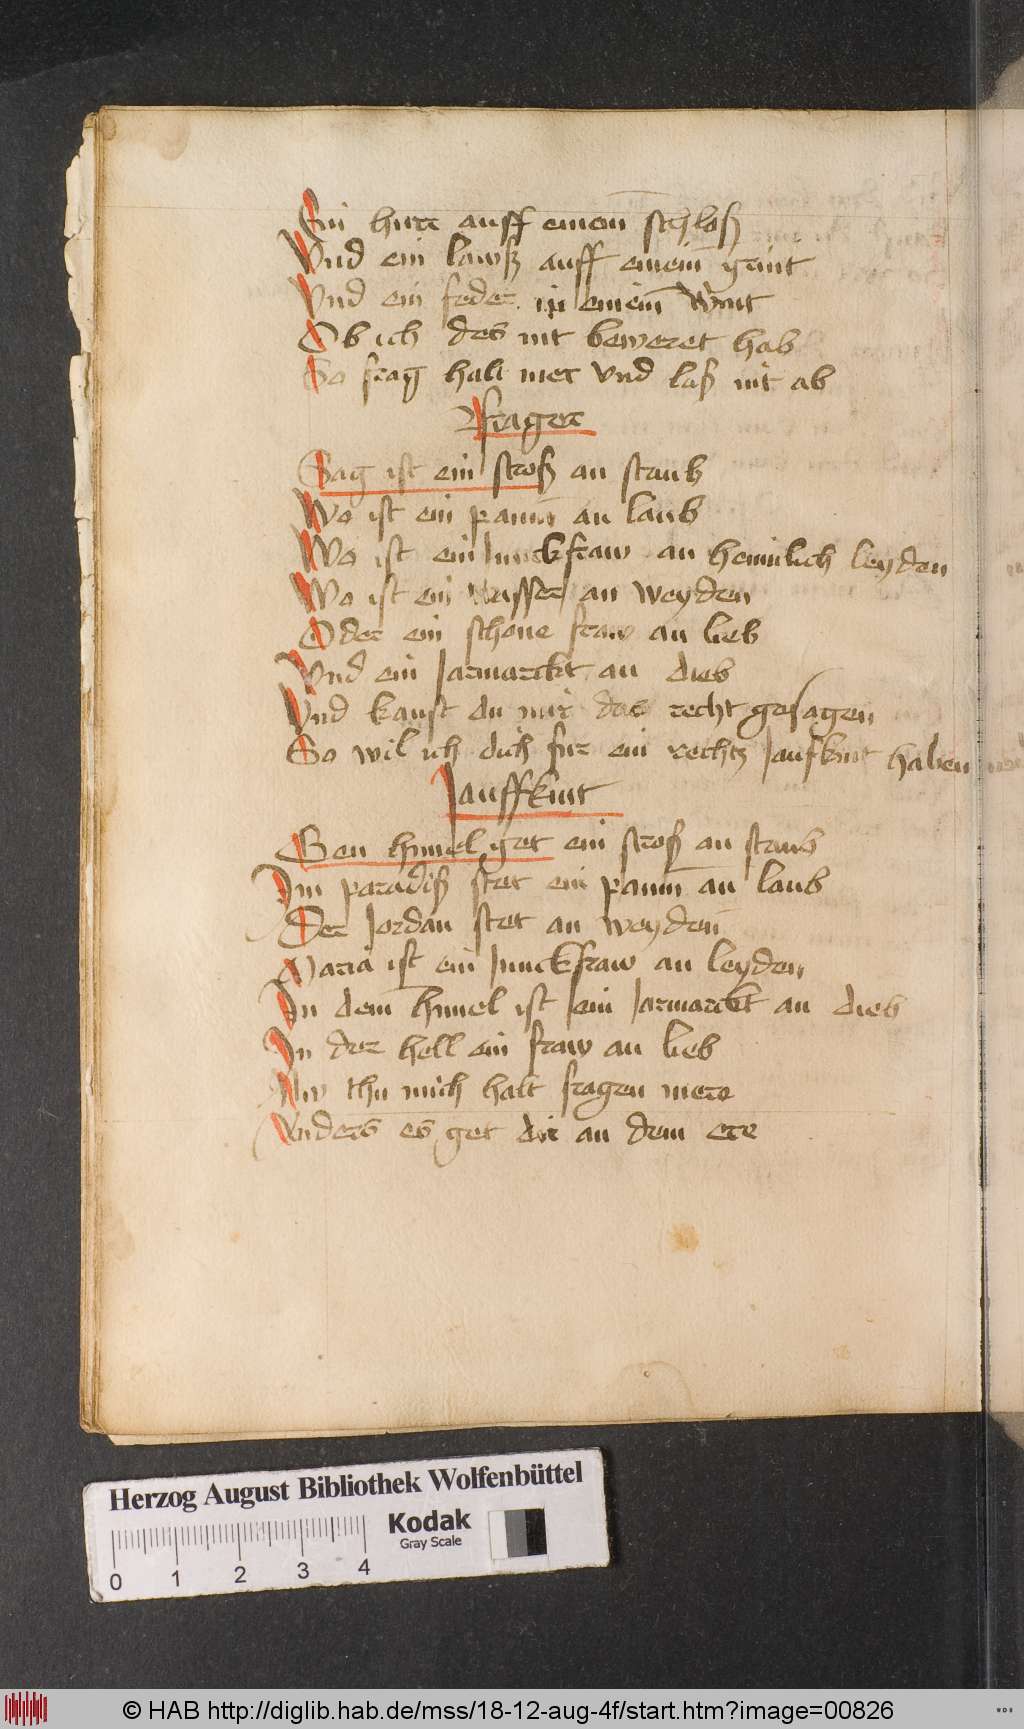 Ein hurr auff einem schloß
Vnd ein lawß auff einem grint
Vnd ein feder in einem wint
Ob ich des nit beweret hab
So frag halt mer vnd laß nit ab
Frager
Sag ist ein stroß an staub
Wo ist ein paum an laub
Wo ist ein Junckfraw an heimlich leyden
Wo ist ein wasser an weyden
Oder ein schone fraw an lieb
Vnd ein Jarmarckt an dieb
Vnd kanst du mir das recht gesagen
So wil ich dich fur ein rechtz Jaufkint haben
Jauffkint
Gen himel get ein stroß an staub
Im paradiß stet ein paum an laub
Der Jordan stet an weyden
Maria ist ein Junckfraw an leyden
In dem himel ist ein Jarmarckt an dieb
In der hell ein fraw an lieb
Nw thu mich halt fragen mere
Anders es get dir an dem ere
Herzog August Bibliothek Wolfenbüttel
Kodak
Gray Scale
0 1 2 3 4
© HAB http://diglib.hab.de/mss/18-12-aug-4f/start.htm?image=00826